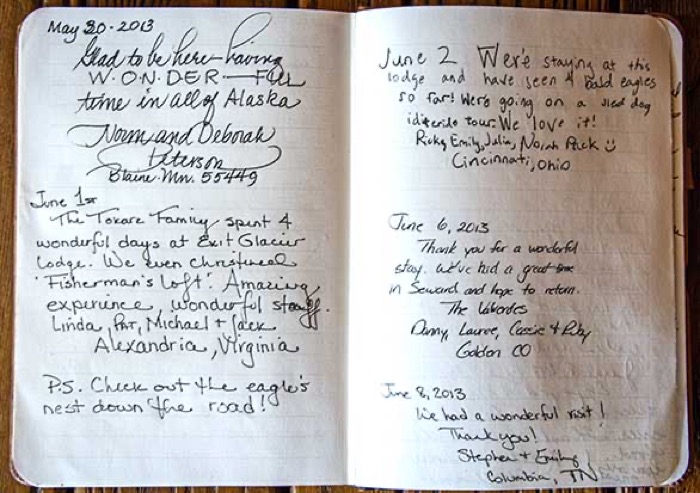 May 30 - 2013
Glad to be here - having
W-O-N-DER-FUL
time in all of Alaska
Norm and Deborah
Peterson
Blaine Mn. 55449
June 1st
The Tokare Family spent 4
wonderful days at Exit Glacier
Lodge. We even christened
"Fisherman's Loft". Amazing
experience, wonderful staff.
Linda, Pat, Michael + Jack
Alexandria, Virginia
P.S. Check out the eagle's
nest down the road!
June 2 We're staying at this
lodge and have seen 4 bald eagles
so far! We're going on a sled dog
iditerido tour. We love it!
Ricky, Emily, Julia, Norah Pack
Cincinnati, Ohio
June 6, 2013
Thank you for a wonderful
stay. We've had a great time
in Seward and hope to return.
The
Danny, Cassie &
Golden CO
June 8, 2013
We had a wonderful visit!
Thank you!
Stephen + Emily
Columbia, TN